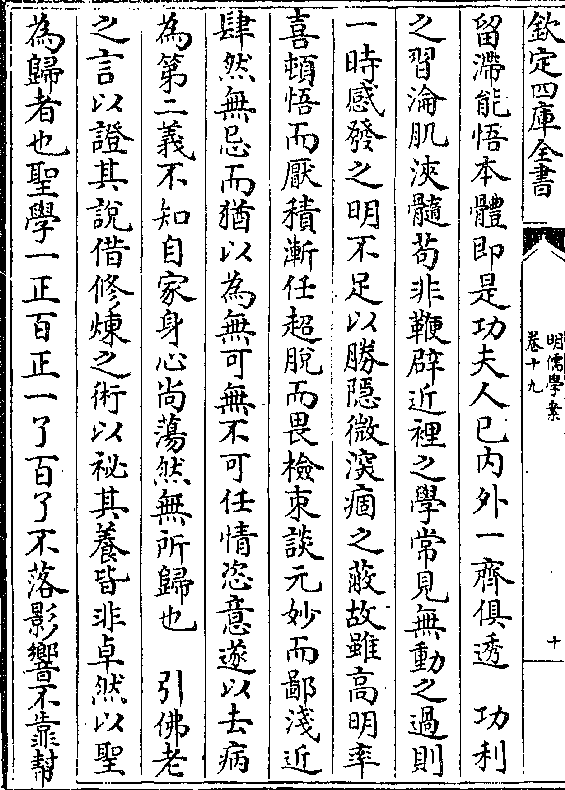 欽定四庫全書
明儒學案
卷十九
十
留滯能悟本體即是功夫人已内外一齊俱透　功利
之習淪肌浹髓苟非鞭辟近裡之學常見無動之過則
一時感發之明不足以勝隱微深痼之蔽故雖高明率
喜頓悟而厭積漸任超脱而畏檢束談元妙而鄙淺近
肆然無忌而猶以為無可無不可任情恣意遂以去病
為第二義不知自家身心尚蕩然無所歸也　引佛老
之言以證其說借修煉之術以祕其養皆非卓然以聖
為歸者也聖學一正百正一了百了不落影響不靠幇